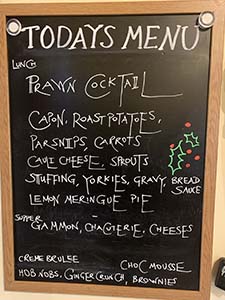 TODAYS MENU
LUNCH
PRAWN COCKTAIL
CAPON, ROAST POTATOES,
PARSNIPS, CARROTS
CAULI CHEESE, SPROUTS
STUFFING, YORKIES, GRAVY, BREAD SAUCE
LEMON MERINGUE PIE
SUPPER
GAMMON, CHACUTERIE, CHEESES
CREME BRULEE
CHOC MOUSSE
HOB NOBS, GINGER CRUNCH, BROWNIES